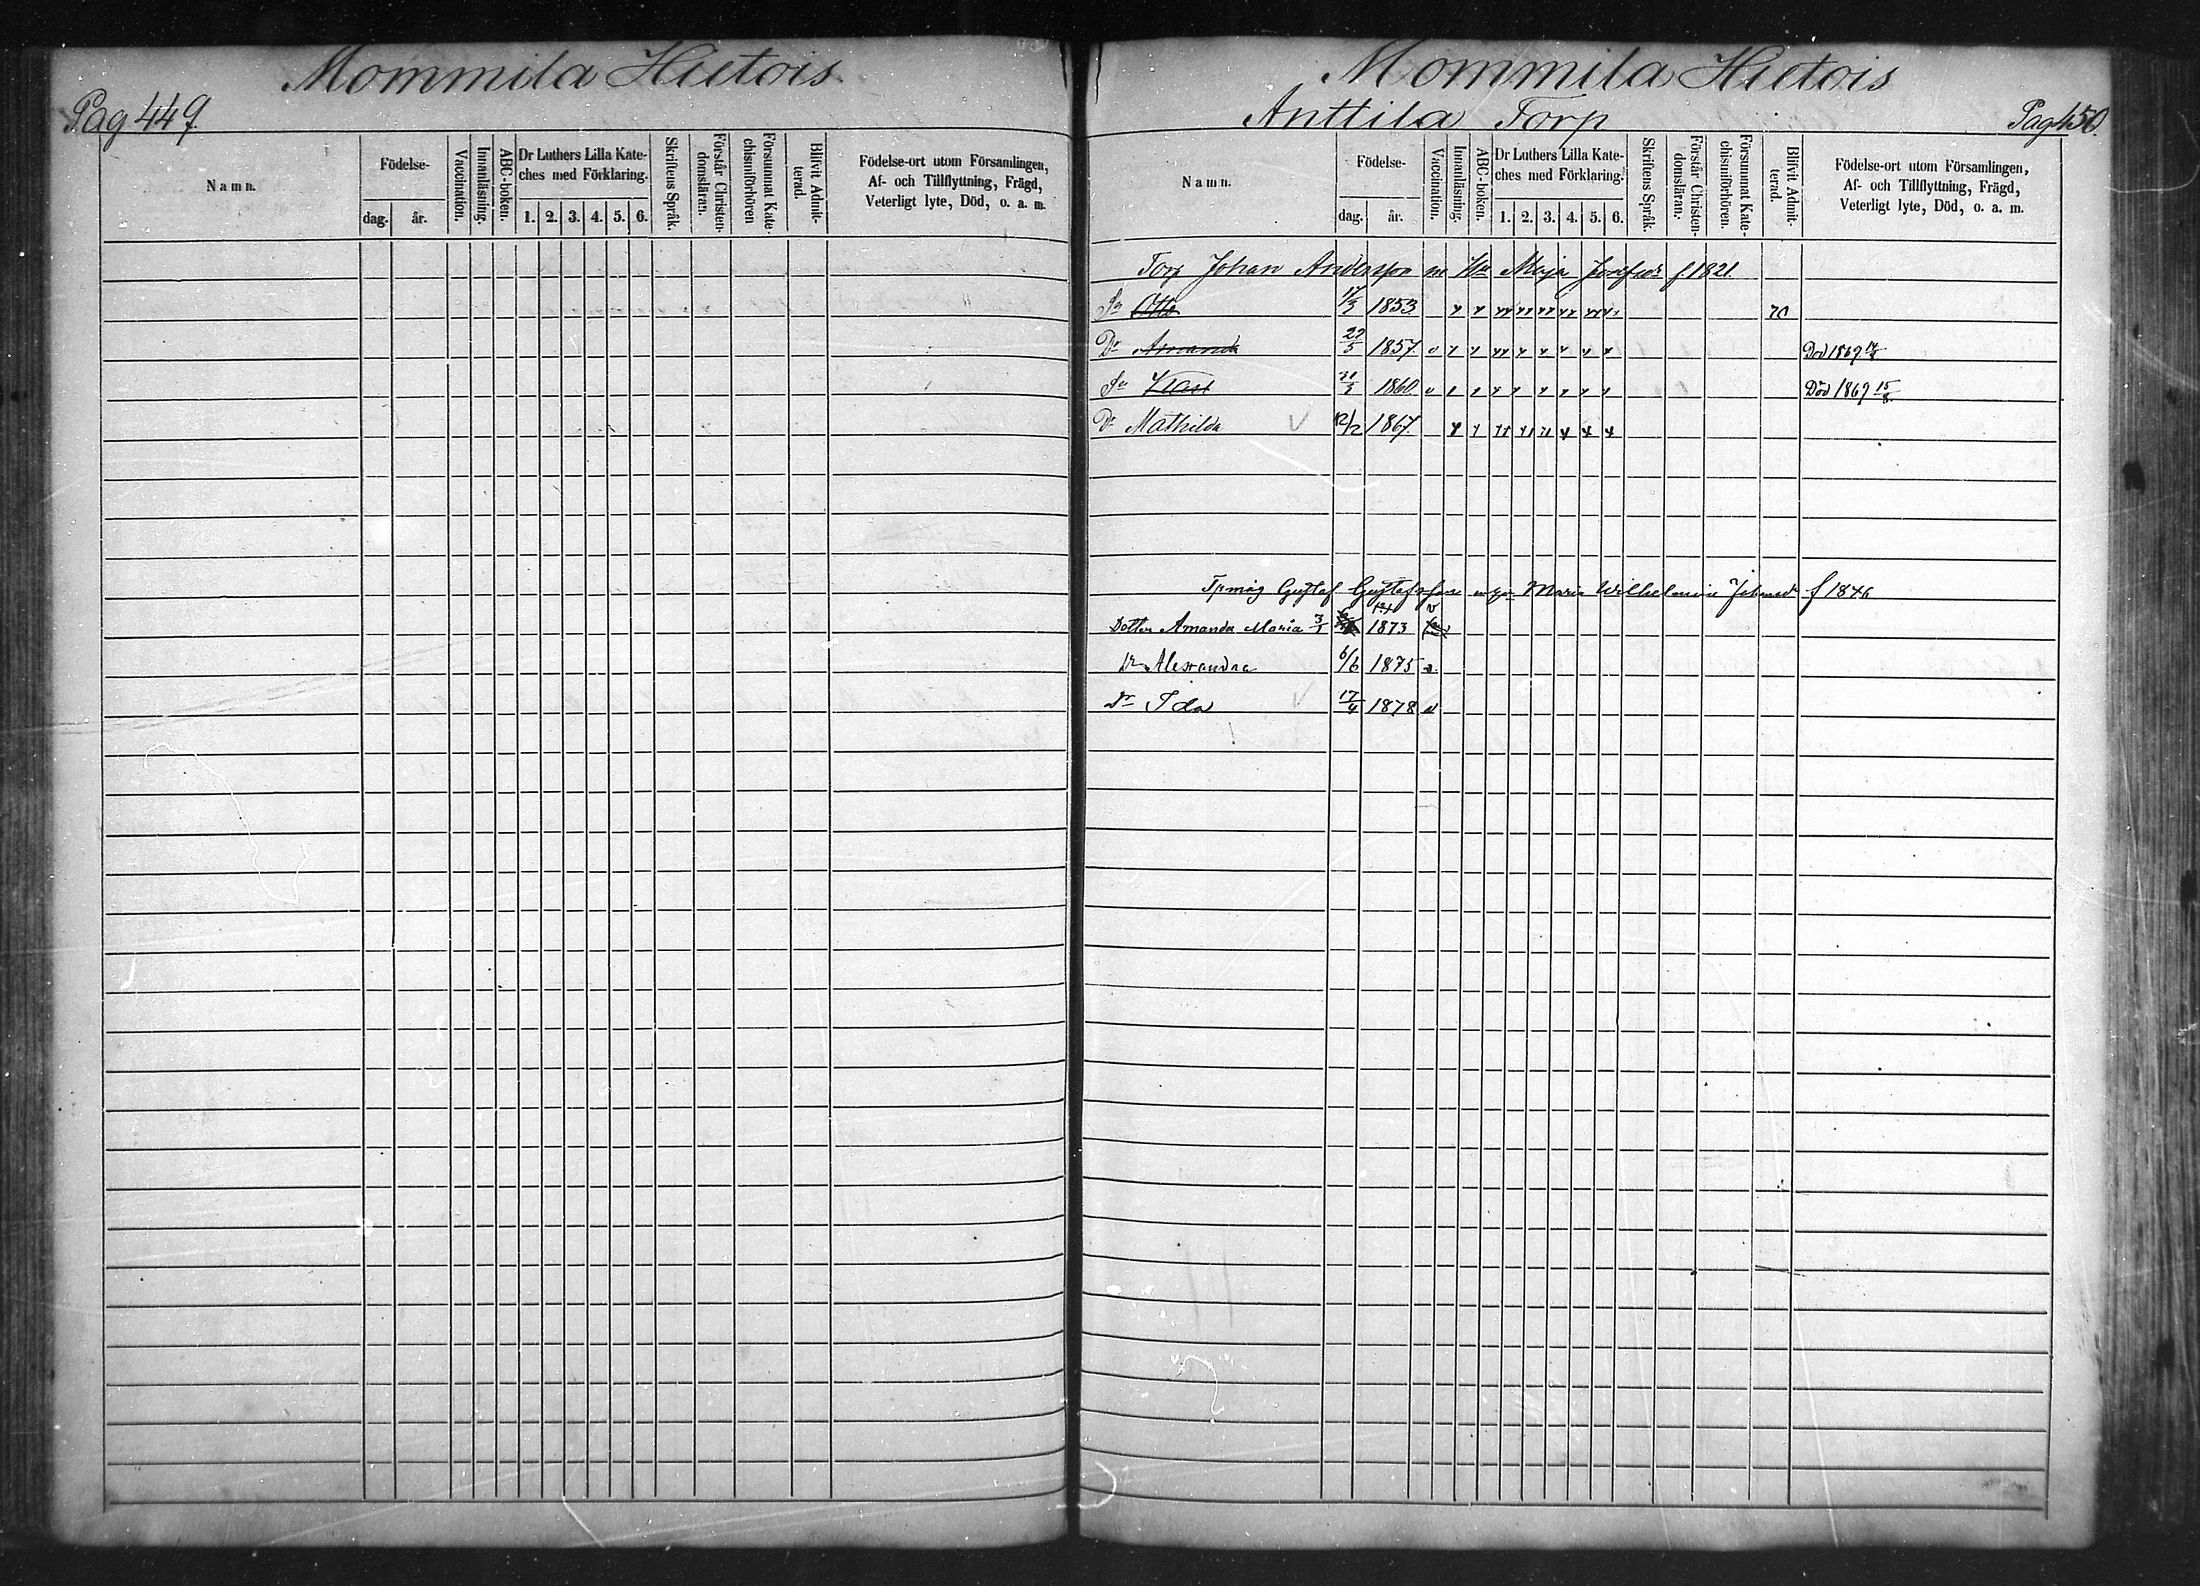 Mommila Hietois
Pag 449.
Namn.
Födelse-
dag.
år.
Vaccination.
Innanläsning.
ABC-boken.
Dr Luthers Lilla Kate-
ches med Förklaring.
1. 2. 3. 4. 5. 6.
Skriftens Språk.
Förstår Christen-
domsläran.
Försummat Kate-
chismiförhören
Blifvit Admit-
terad.
Födelse-ort utom Församlingen,
Af- och Tillflyttning, Frägd,
Veterligt lyte, Död, o. a. m.
Mommila Hietois
Anttila Torp
Pag 450.
Namn.
Födelse-
dag.
år.
Vaccination.
Innanläsning.
ABC-boken.
Dr Luthers Lilla Kate-
ches med Förklaring.
1. 2. 3. 4. 5. 6.
Skriftens Språk.
Förstår Christen-
domsläran.
Försummat Kate-
chismiförhören.
Blifvit Admit-
terad.
Födelse-ort utom Församlingen,
Af- och Tillflyttning, Frägd,
Veterligt lyte, Död, o. a. m.
Torp Johan Andersson m Hu Maja f. 1821.
Sn Otto 17/3 1853 70
Dr Amanda 1857. v Död 1869
Sn 1860. v Död 1869 15/8
Dr Mathilda V 12/12 1867.
Gustaf Gustafsson Maria Wilhelmina f 1846
Dotter Amanda Maria 3/1 1873 v
Dr Alexandra 6/6 1875 v.
Dr Ida V 17/4 1878 v